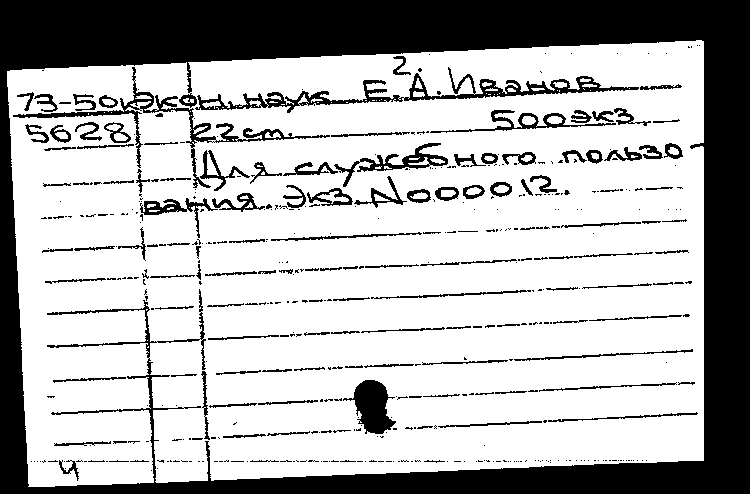 2
73-50к экон. наук Е.А. Иванов
5628 22см. 500экз.
Для служебного пользо-
вания. Экз. N000012.
ч